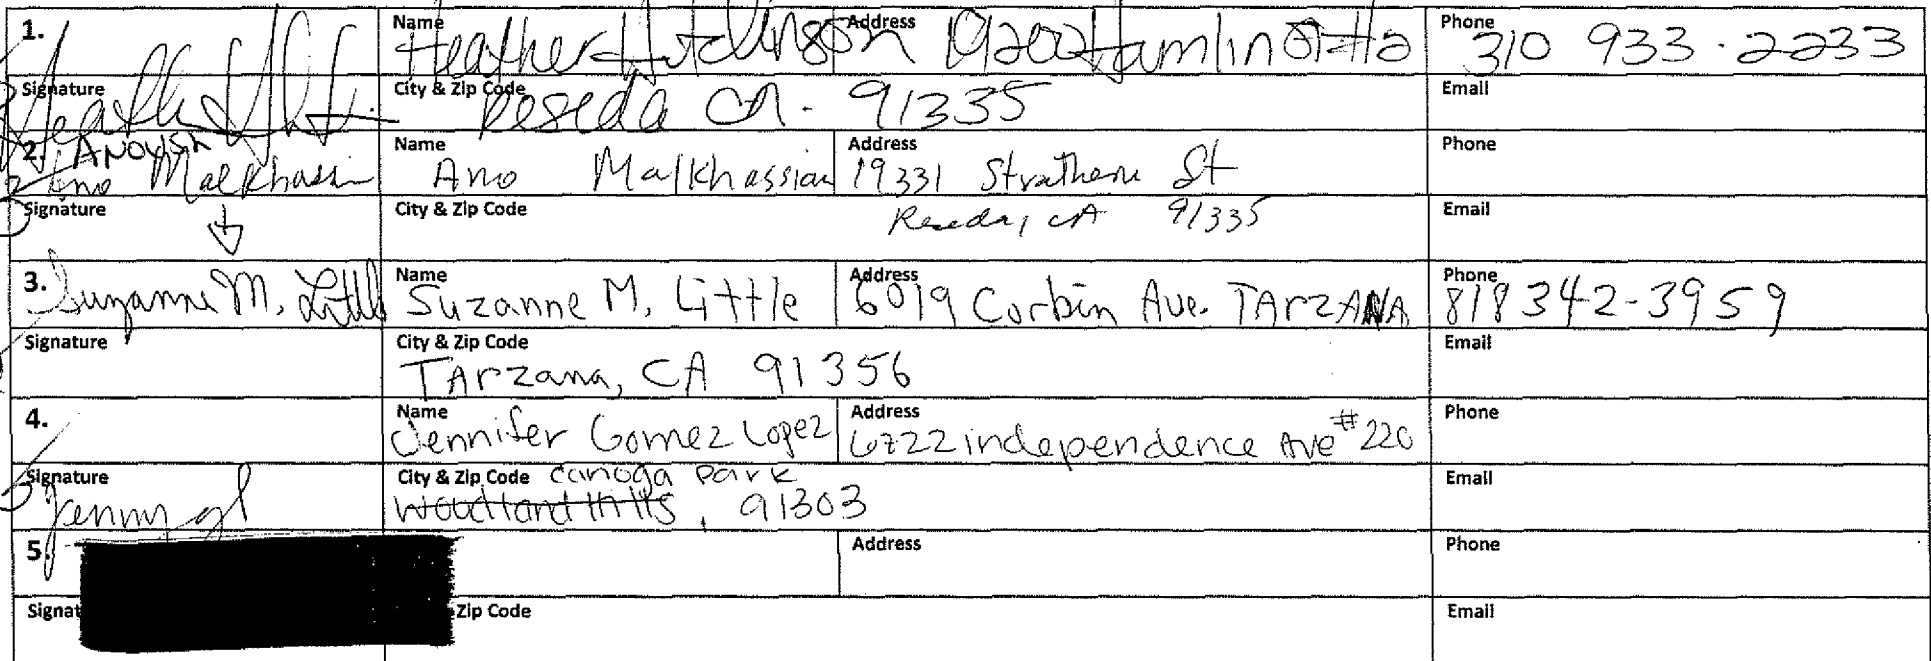 1. Name Heather Hutchinson Address 19200 Hamlin St #2 Phone 310 933-2233
Signature City & Zip Code Reseda CA. 91335 Email
2. ANOUSH Name Ano Malkhassian Address 19331 Strathern St Phone
Ano Malkhassian
Signature City & Zip Code Reseda, CA 91335 Email
3. Suzanne M. Little Name Suzanne M. Little Address 6019 Corbin Ave. TArzANA Phone 818 342-3959
Signature City & Zip Code Email
TArzana, CA 91356
4. Name Jennifer Gomez Lopez Address 6722 independence Ave #220 Phone
Signature City & Zip Code canoga park Email
Jenny gl Woodland Hills, 91303
5. Address Phone
Signat Zip Code Email